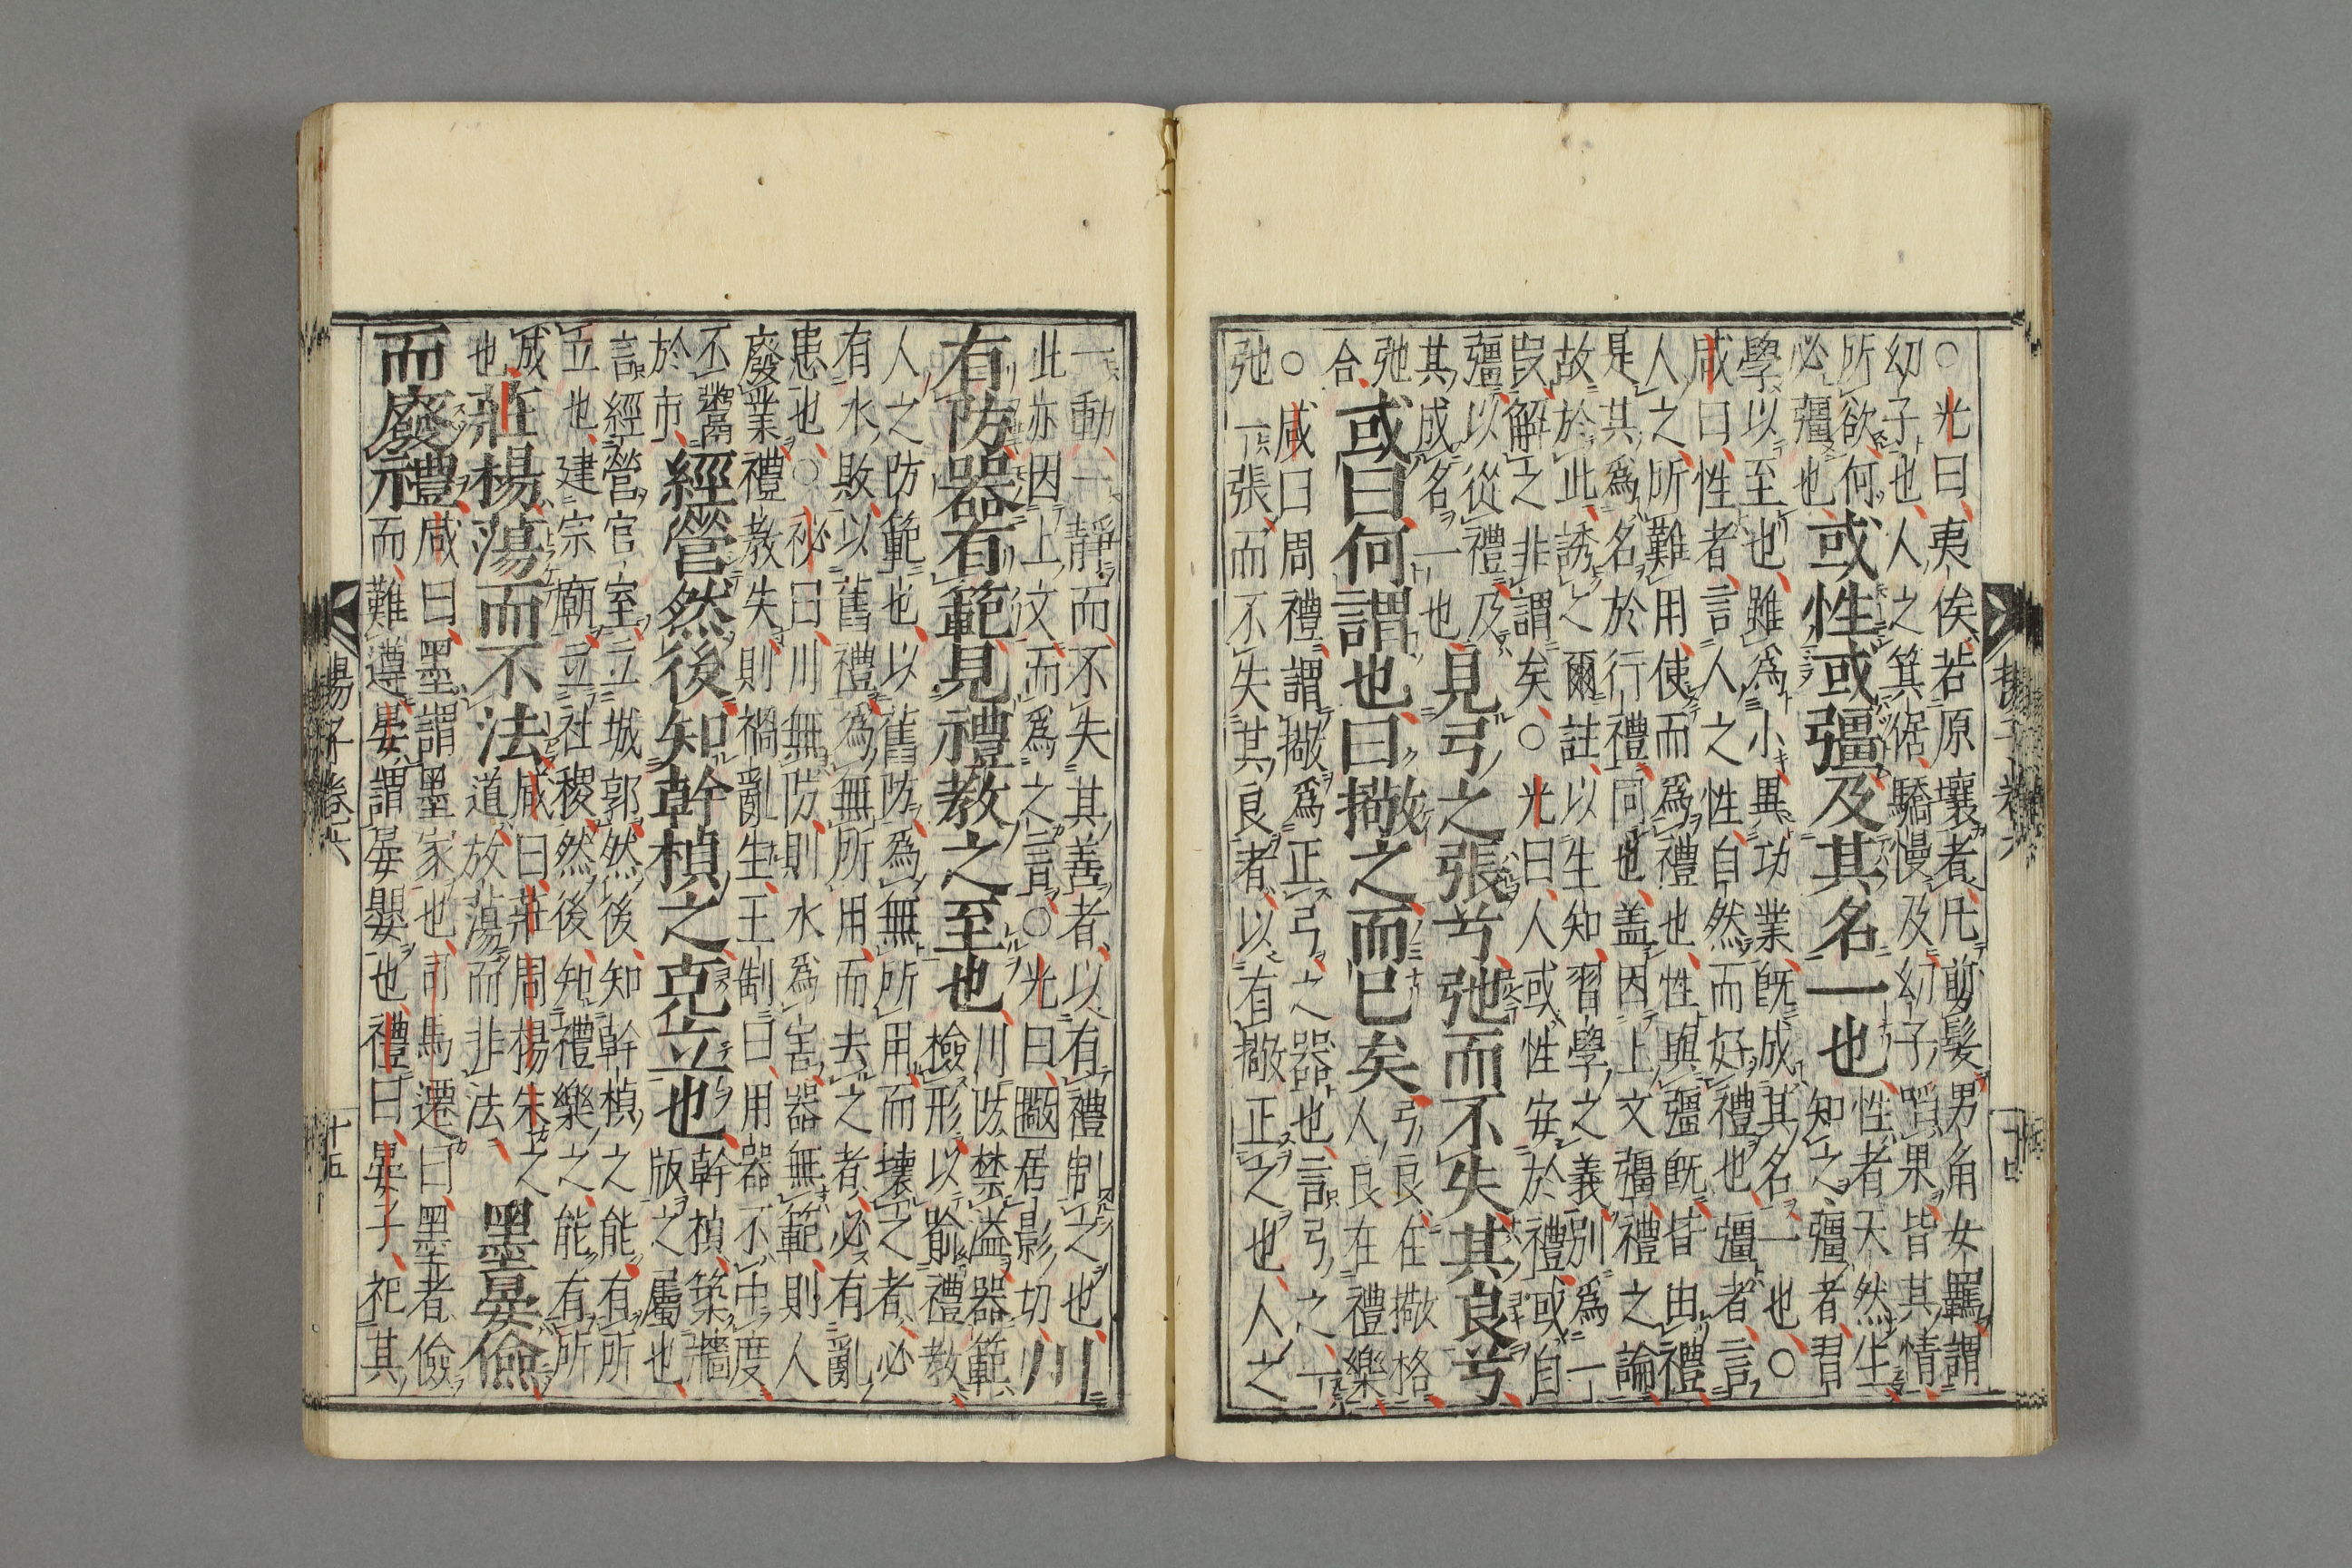 ○光曰夷俟若原壤者凡剪髮男角女羈謂
幼子也人之箕倨驕慢及幼子蹈果皆其情
所欲何
必彊也
或性或彊及其名一也
性者天然生
知之彊者習
學以至也雖爲小異功業既成其名一也○
咸曰性者言人之性自然而好禮也彊者言
人之所難用使而爲禮也性與彊既皆由禮
是其爲名於行禮同也盖因上文彊禮之論
故於此誘之爾註以生知習學之義別爲一
解之非謂矣○光曰人或性安於禮或自
彊以從禮及
其成名一也
見弓之張兮弛而不失其良兮
弛
合
或曰何謂也曰撒之而已矣
弓良在撒格
人良在禮樂
○咸曰周禮謂撒爲正弓之器也言弓之一
弛一張而不失其良者以有撒正之也人之
一動一静而不失其善者以有禮制之也
此亦因上文而爲之言○光曰撒居影切
川
有防器有範見禮教之至也
川防禁溢器範
檢形以喻禮教
人之防範也以舊防爲無所用而壞之者必
有水敗以舊禮爲無所用而去之者必有亂
患也○祕曰川無防則水爲害器無範則人
廢業禮教失則禍亂生王制曰用器不中度
不鬻
於市
經營然後知幹楨之克立也
幹楨築牆
版之屬也
言經營官室立城郭然後知幹楨之能有所
立也建宗廟立社稷然後知禮樂之能有所
成
也
莊楊蕩而不法
咸曰莊周楊朱之
道放蕩而非法
墨晏儉
而廢禮
咸曰墨謂墨家也司馬遷曰墨者儉
而難遵晏謂晏嬰也禮曰晏子祀其
揚子卷六
十五